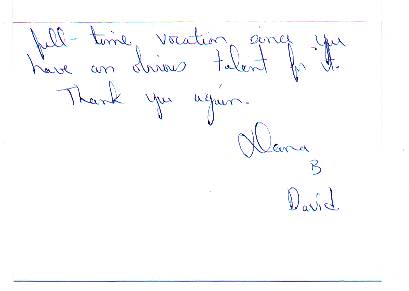 full-time vocation since you
have an obvious talent for it.
Thank you again.
Dana
B
David